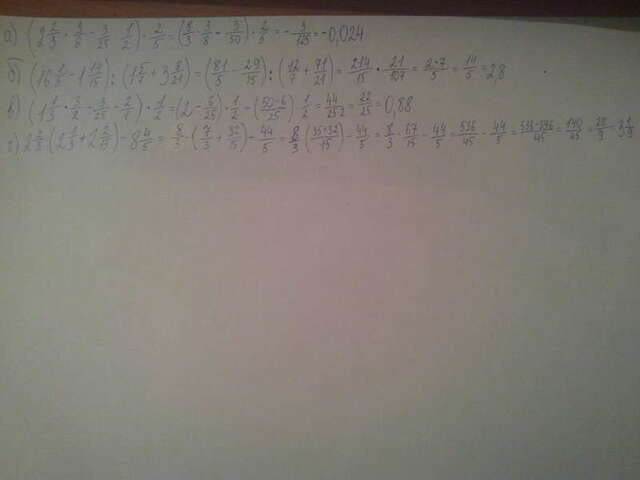 а) (2 2/3 · 3/8 - 3/25 1/2) · 2/5 = (8/3 · 3/8 - 3/50) · 2/5 = - 3/125 = -0,024
б) (16 1/5 - 1 14/15) : (1 5/7 + 3 8/21) = (81/5 - 29/15) : (12/7 + 71/21) = 214/15 · 21/107 = 2·7/5 = 14/5 = 2,8
в) (1 1/3 · 3/2 - 3/25 · 2/1) · 1/2 = (2 - 6/25) · 1/2 = (50-6/25) · 1/2 = 44/25·2 = 22/25 = 0,88
г) 2 2/3 (2 1/3 + 2 2/15) - 8 4/5 = 8/3 · (7/3 + 32/15) - 44/5 = 8/3 (35+32/15) - 44/5 = 8/3 · 67/15 - 44/5 = 536/45 - 44/5 = 536-396/45 = 140/45 = 28/9 = 3 1/9